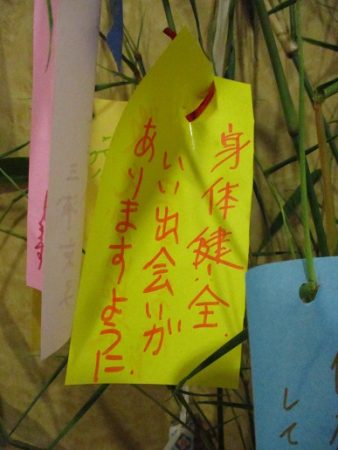 身体健全.
いい出会いが
ありますように.
レイ